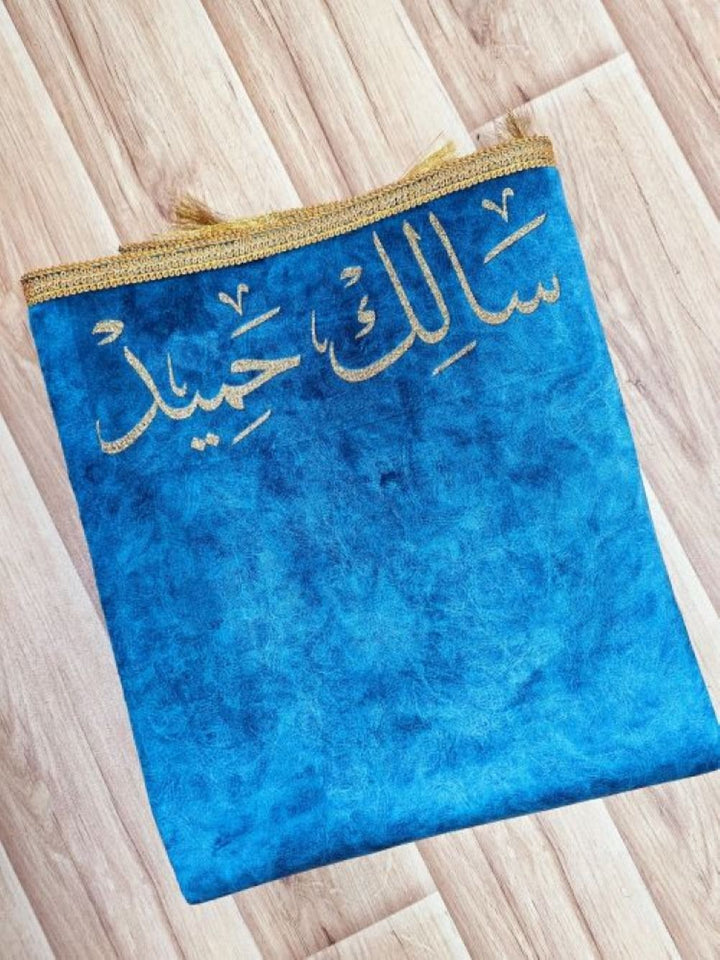 سَالِك حَمِيد